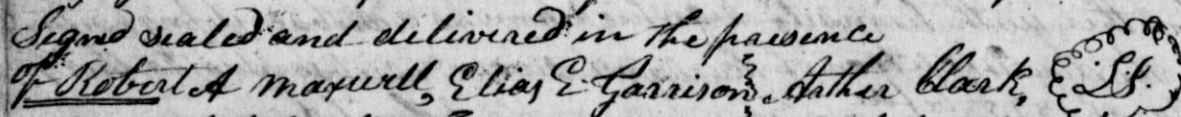 Signd sealed and delivered in the presence
of Robert A Maxwell, Elias E. Garrison Arther Clark, L.S.